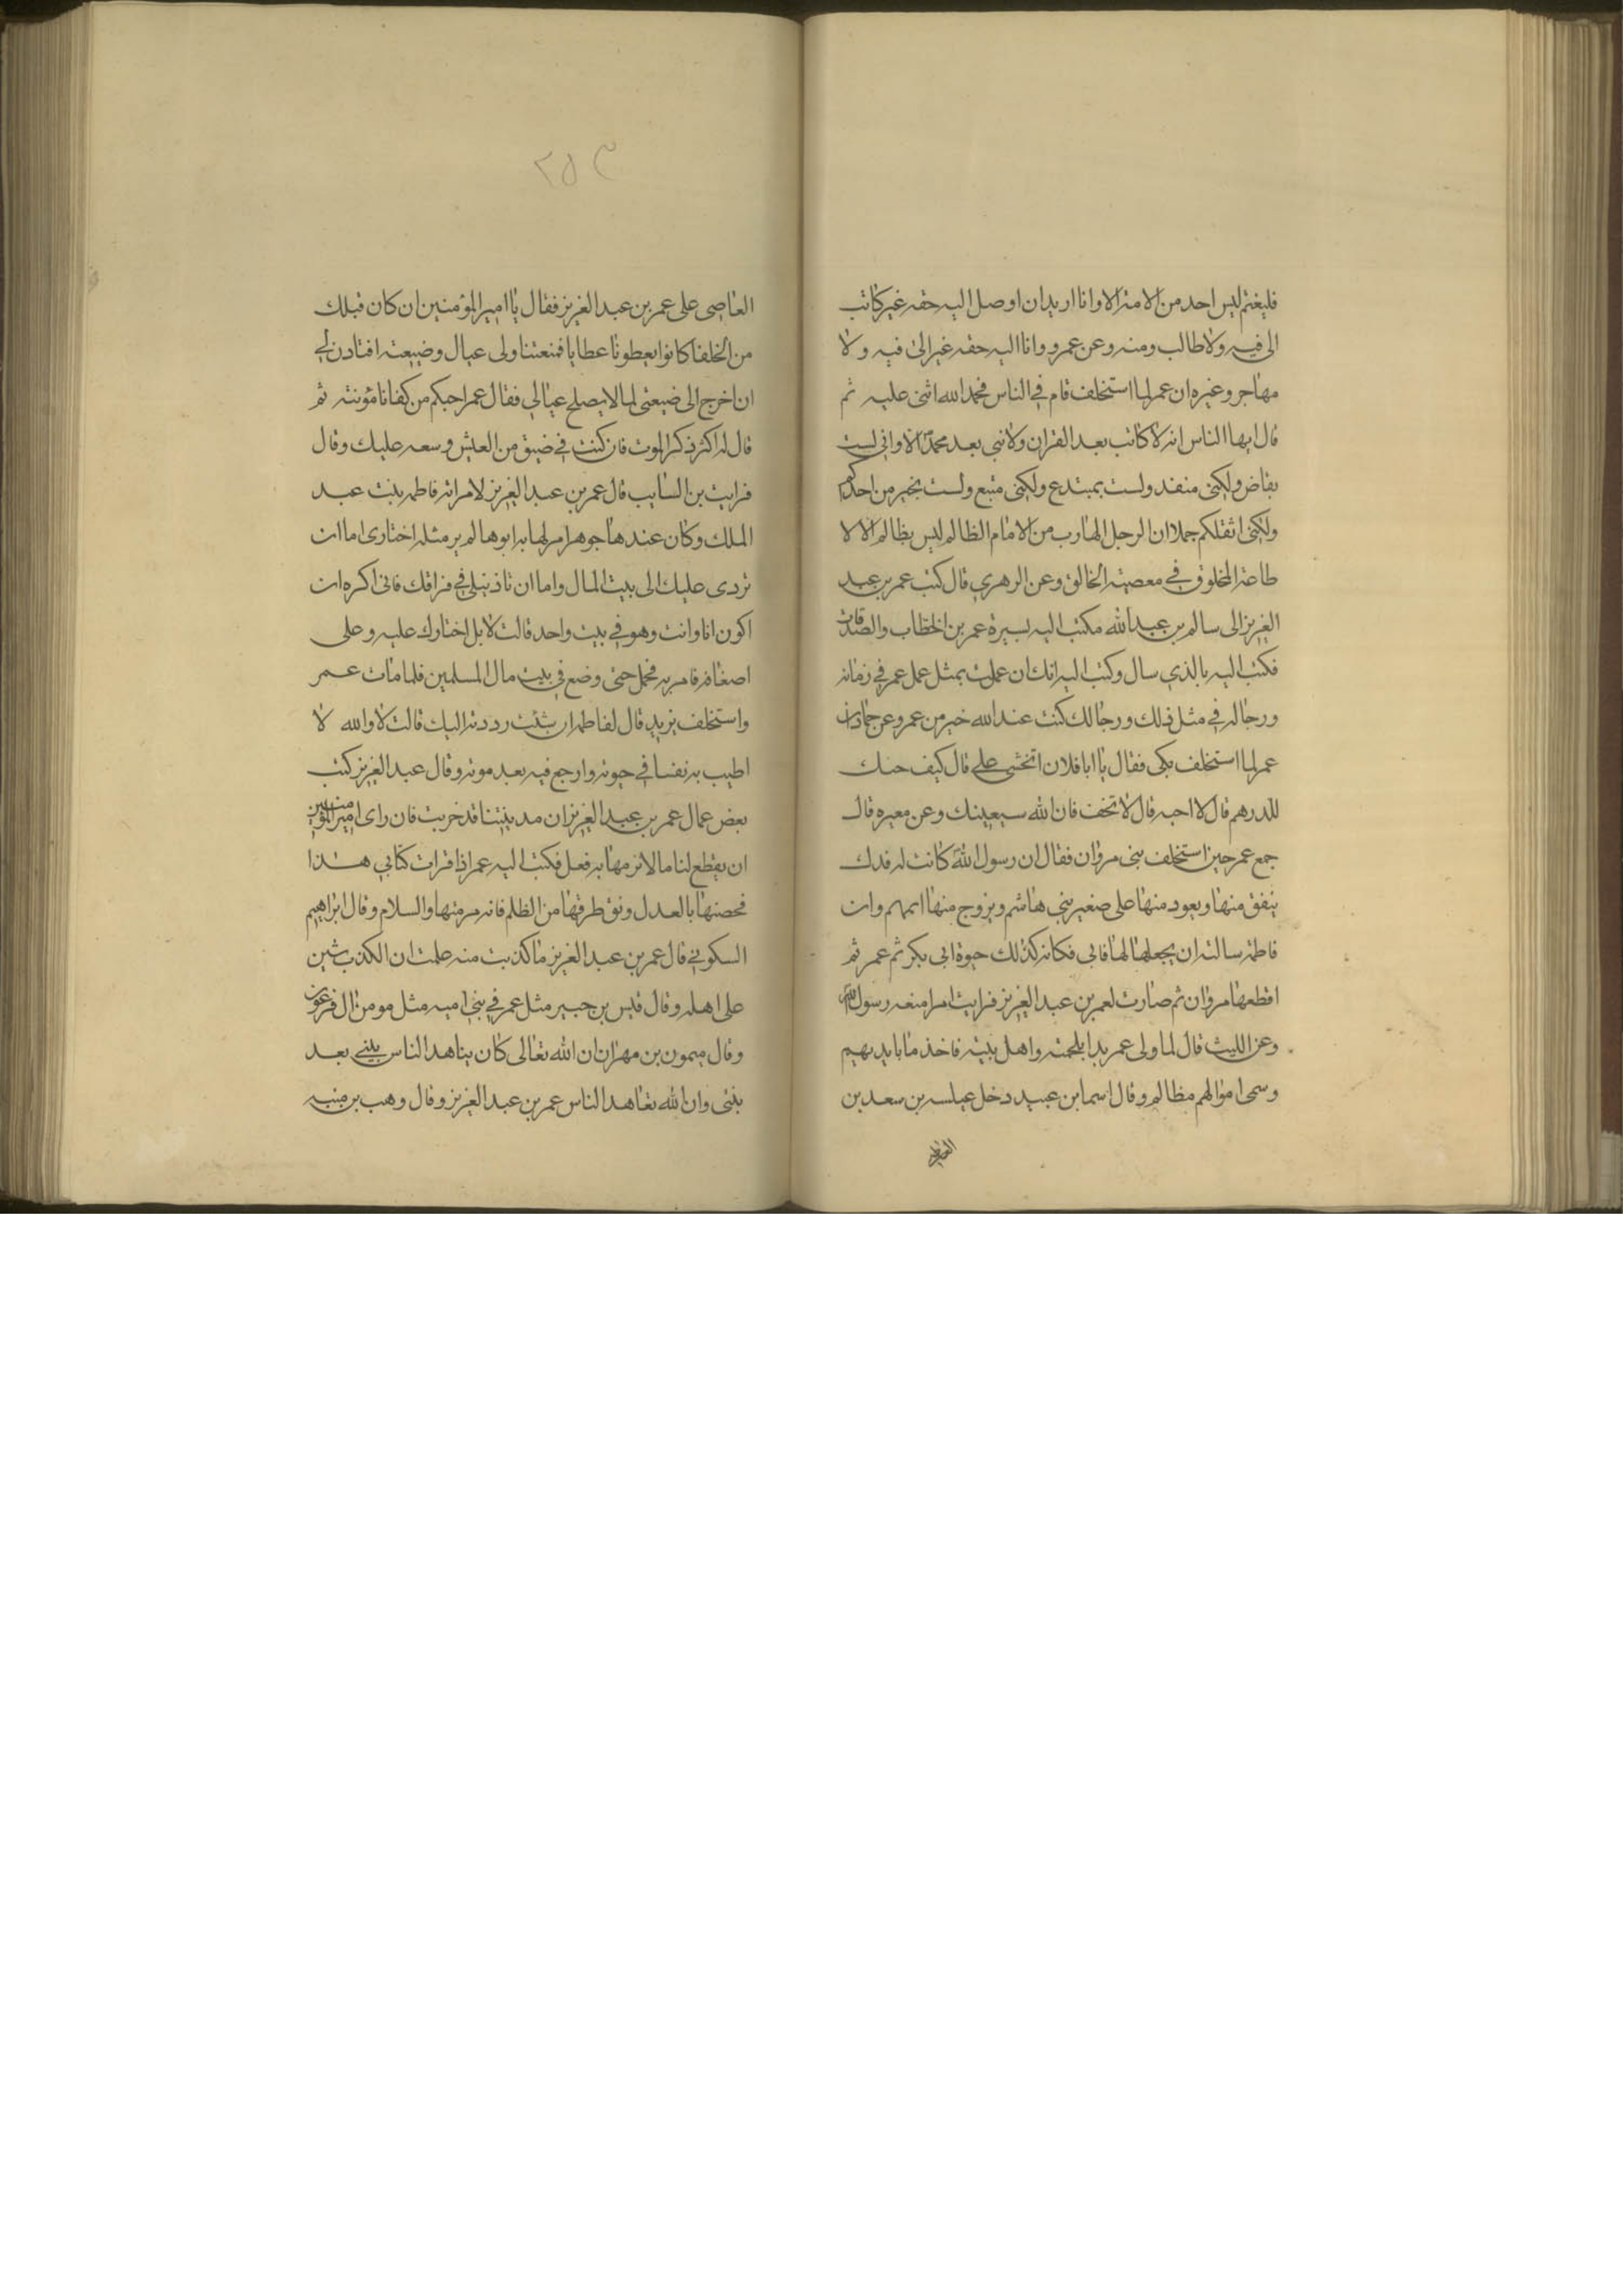 فليغتم ليس احد من الامة الا وانا اريد ان اوصل اليه حقه غير كاتب
الى فيه ولا طالب ومنه وعن عمرو وانا اليه حقه غير الى فيه ولا
مهاجر وغيره ان عمر لما استخلف قام في الناس فحمد الله اثنى عليه ثم
قال ايها الناس انه لا كاتب بعد القران ولا نبي بعد محمد الا واني لست
بقاض ولكني منفد ولست بمبتدع ولكني متبع ولست بخير من احدكم
ولكني اثقلكم حملا ان الرجل الهارب من الامام الظالم ليس بظالم الا لا
طاعة المخلوق في معصية الخالق وعن الزهري قال كتب عمر بن عبد
العزيز الى سالم بن عبد الله مكتب اليه بسيرة عمر بن الخطاب والصدقات
فكتب اليه بالذي سال وكتب اليه انك ان عملت بمثل عمل عمر في زمانه
ورجاله في مثل ذلك ورجالك كنت عند الله خير من عمر وعن حماد ان
عمر لما استخلف بكى فقال يا ابا فلان اتخشى علي قال كيف حبك
للدرهم قال لا احبه قال لا تخف فان الله سيعينك وعن معيره قال
جمع عمر حين استخلف بني مروان فقال ان رسول الله كانت له فدك
ينفق منها ويعود منها على صغير بني هاشم ويزوج منها ايمهم وان
فاطمة سالته ان يجعلها لها فابى فكانه كذلك حيوة ابي بكر ثم عمر ثم
اقطعها مروان ثم صارت لعمر بن عبد العزيز فرايت امرا منعه رسول الله
وعن الليث قال لما ولى عمر بدا بلحمته واهل بيته فاخذ ما بايديهم
وسمى اموالهم مظالم وقال اسما بن عبيد دخل عبلسه بن سعد بن
٢٥٣
العاصى على عمر بن عبد العزيز فقال يا امير المؤمنين ان كان قبلك
من الخلفا كانوا يعطونا عطايا فمنعتنا ولى عيال وضيعة افتادن لي
ان اخرج الى ضيعتى لما لا يصلح عيالي فقال عمر احبكم من كفانا مؤنته ثم
قال له اكثر ذكر الموت فان كنت في ضيق من العيش وسعه عليك وقال
فرايت بن السايب قال عمر بن عبد العزيز لامراته فاطمه بنت عبد
الملك وكان عندها جوهر امر لها به ابوها لم ير مثله اختارى اما ان
تردى حليك الى بيت المال واما ان تاذنيلي في فراقك فانى اكره ان
اكون انا وانت وهو في بيت واحد قالت لا بل اختارك عليه وعلى
اضعافه فامر به فحمل حتى وضع في بيت مال المسلمين فلما مات عمر
واستخلف يزيد قال لفاطمه ان شئت رددته اليك قالت لا والله لا
اطيب به نفسا في حيوته وارجع فيه بعد موته وقال عبد العزيز كتب
بعض عمال عمر بن عبد العزيز ان مدينتنا قد خربت فان راى امير المؤمنين
ان يقطع لنا مالا نرمها به فعل فكتب اليه عمر اذا قرات كتابي هذا
فحصنها بالعدل ونق طرقها من الظلم فانه مرمتها والسلام وقال ابراهيم
السكوني قال عمر بن عبد العزيز ما كذبت منه علمت ان الكذب شين
على اهله وقال قيس بن جبير مثل عمر في بني اميه مثل مومن ال فرعون
وقال ميمون بن مهران ان الله تعالى كان يتاهد الناس بنبي بعد
بنبى وان الله تعاهد الناس عمر بن عبد العزيز وقال وهب بن منبه